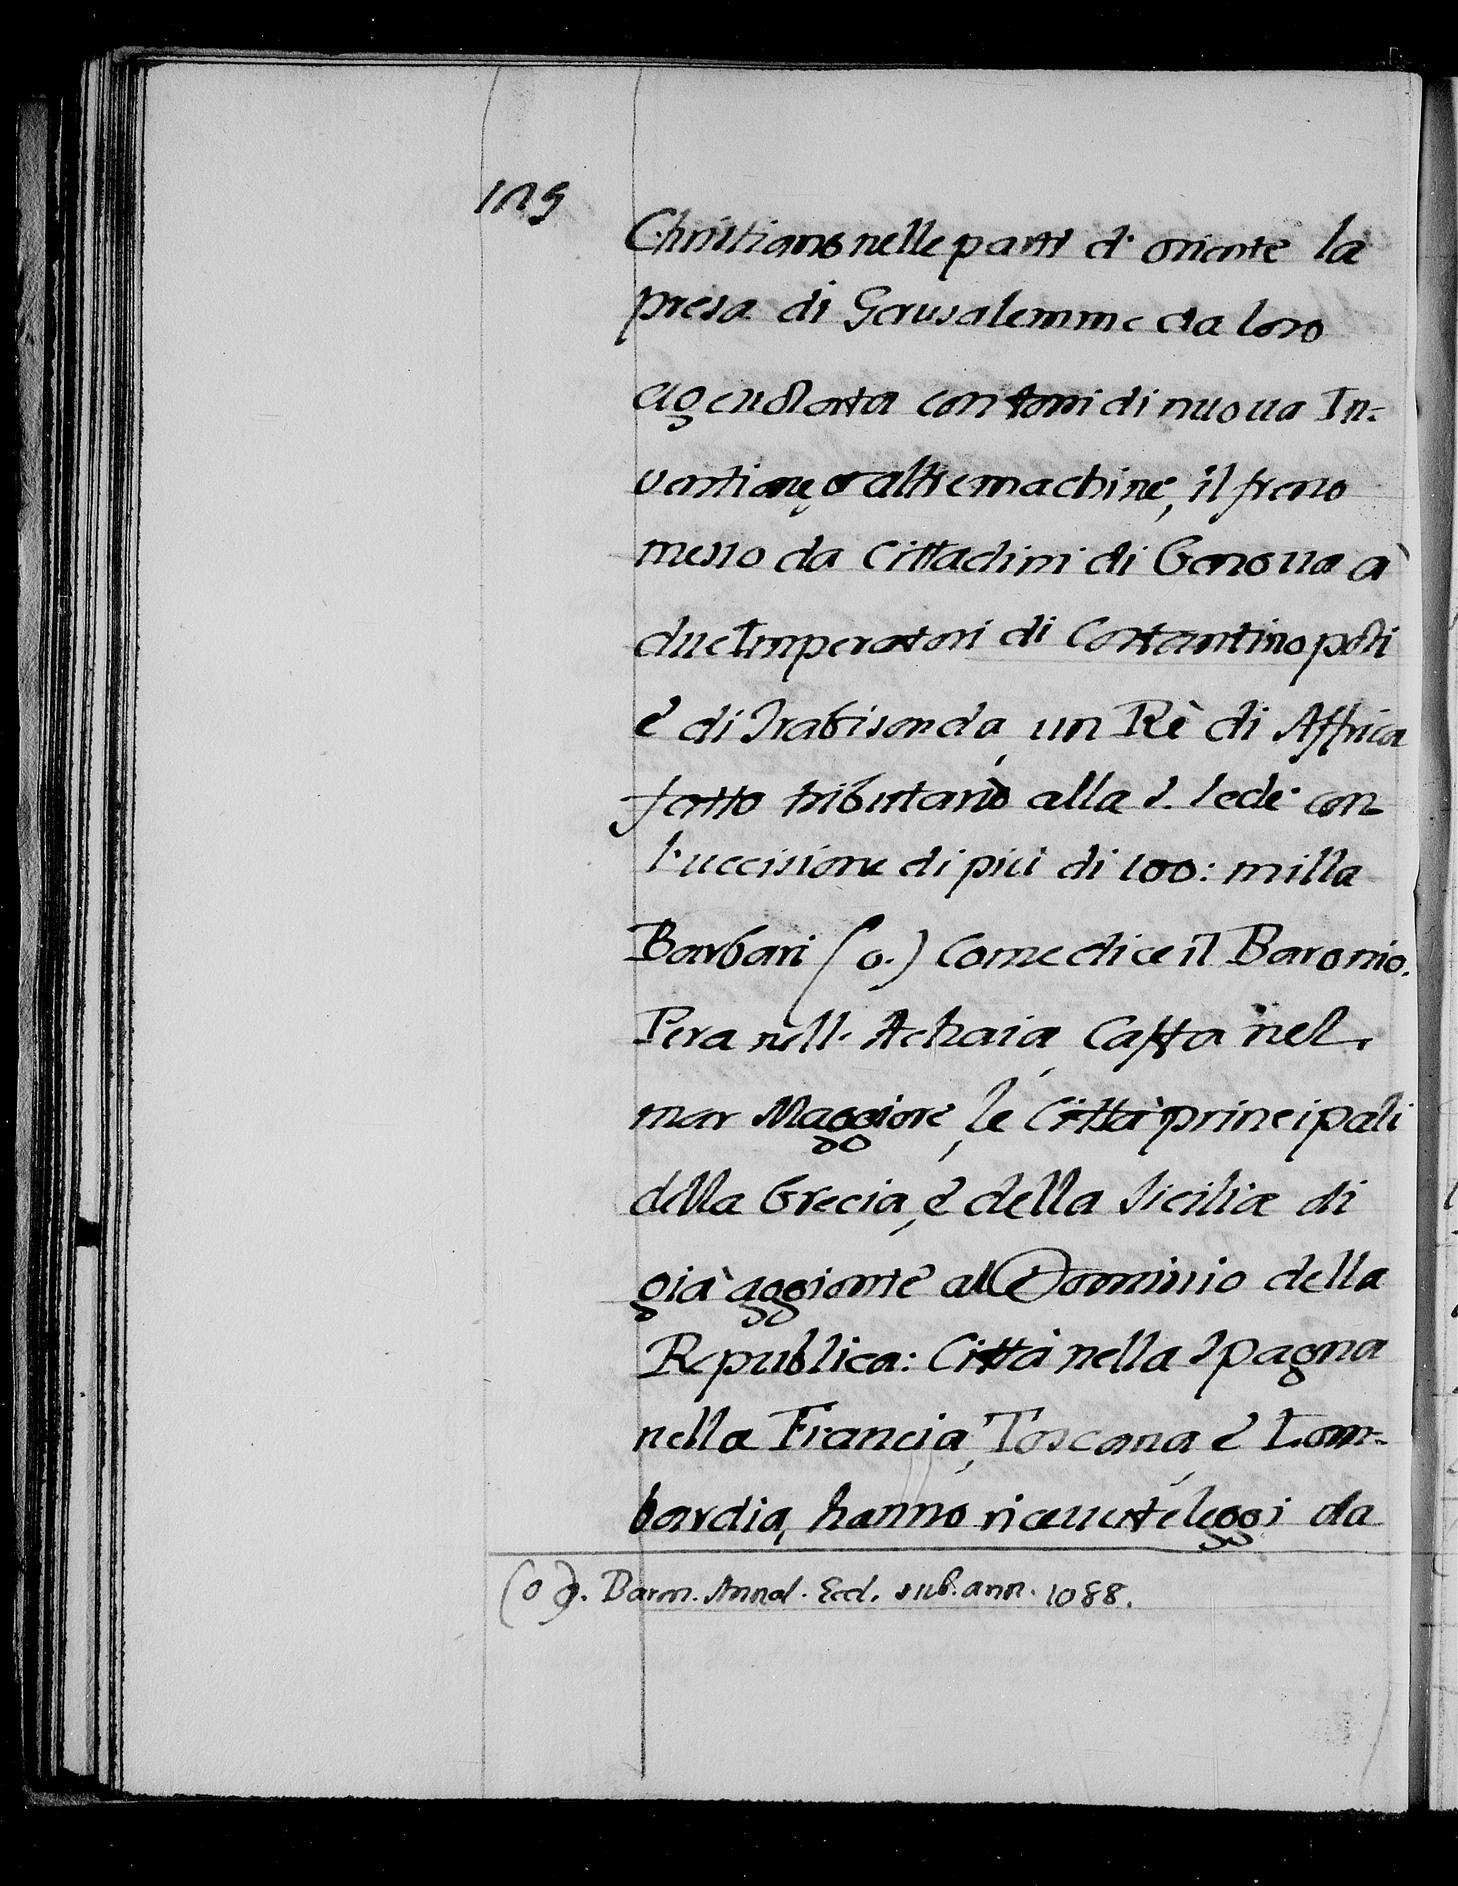 Christiano nelle parti d' oriente la
presa di Gerusalemme da loro
ageuolata con torri di nuoua In-
uentione, o altre machine, il freno
messo da Cittadini di Genoua à
due Imperatori di Costantinopoli
è di Trabisonda, un Rè di Affrica
fatto tributario alla S. Sede con
l'uccisione di più di 100: milla
Barbari (o.) Come dice il Baronio.
Pera nell' Achaia, Caffa nel
mar Maggiore, le Città principali
della Grecia, è della Sicilia di
già aggionte al Dominio della
Republica: Città nella Spagna
nella Francia, Toscana, è Lom-
bardia, hanno riceuute leggi da
(o). Baron. Annal. Eccl. sub. ann. 1088.